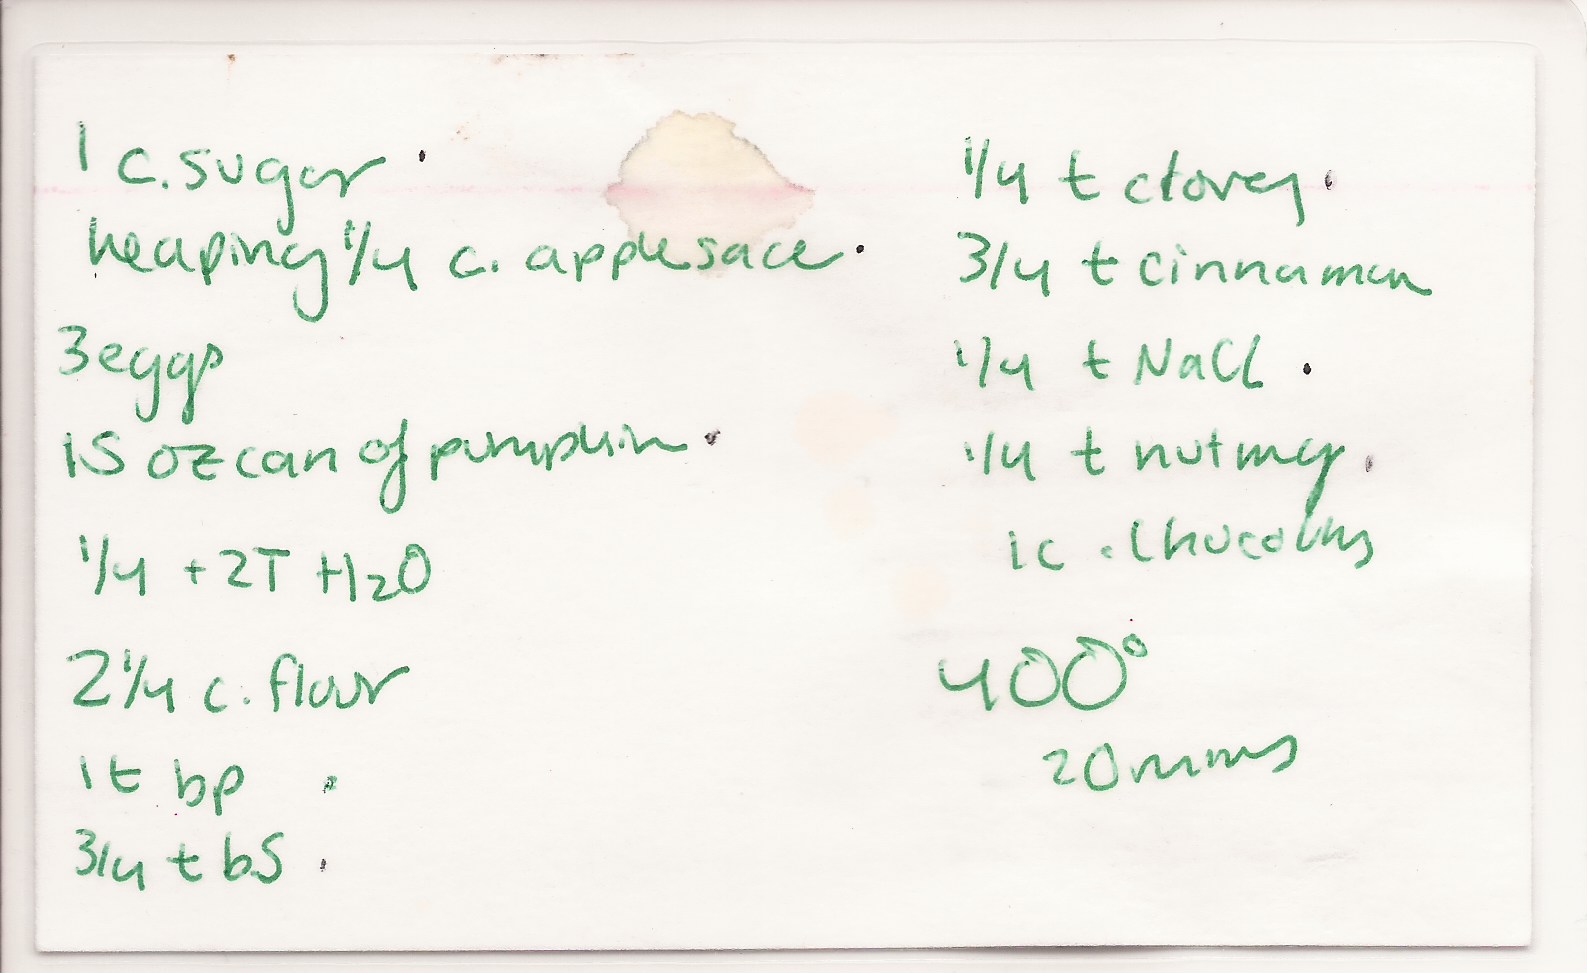 1 c. sugar
heaping 1/4 c. applesace
3 eggs
15 oz can of pumpkin
1/4 + 2T H2O
2 1/4 c. flour
1t bp
3/4 t bs
1/4 t cloves
3/4 t cinnamon
1/4 t NaCl
1/4 t nutmeg
1c. chocolate
400°
20 mins